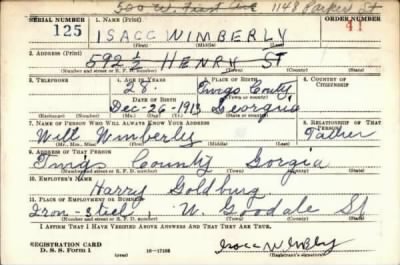 500 W. First Ave 1148 Parker St
SERIAL NUMBER 1. NAME (Print) ORDER NUMBER
125 ISACC WIMBERLY 41
(First) (Middle) (Last)
2. ADDRESS (Print)
592 ½ HENRY ST
(Number and street or R. F. D. number) (Town) (County) (State)
3. TELEPHONE 4. AGE IN YEARS 5. PLACE OF BIRTH 6. COUNTRY OF CITIZENSHIP
28. Twigs County
DATE OF BIRTH (Town or county)
Dec-26-1913 Georgia
(Exchange) (Number) (Mo.) (Day) (Yr.) (State or country)
7. NAME OF PERSON WHO WILL ALWAYS KNOW YOUR ADDRESS 8. RELATIONSHIP OF THAT PERSON
Will Wimberly Father
(Mr., Mrs., Miss) (First) (Middle) (Last)
9. ADDRESS OF THAT PERSON
Twigs County Gorgia
(Number and street or R. F. D. number) (Town) (County) (State)
10. EMPLOYER'S NAME
Harry Goldburg.
11. PLACE OF EMPLOYMENT OR BUSINESS
Iron-steel W. Goodale St
(Number and street or R. F. D. number) (Town) (County) (State)
I AFFIRM THAT I HAVE VERIFIED ABOVE ANSWERS AND THAT THEY ARE TRUE.
REGISTRATION CARD
D. S. S. Form 1 (over) 16-17105 Isacc Wimberly
(Registrant's signature)